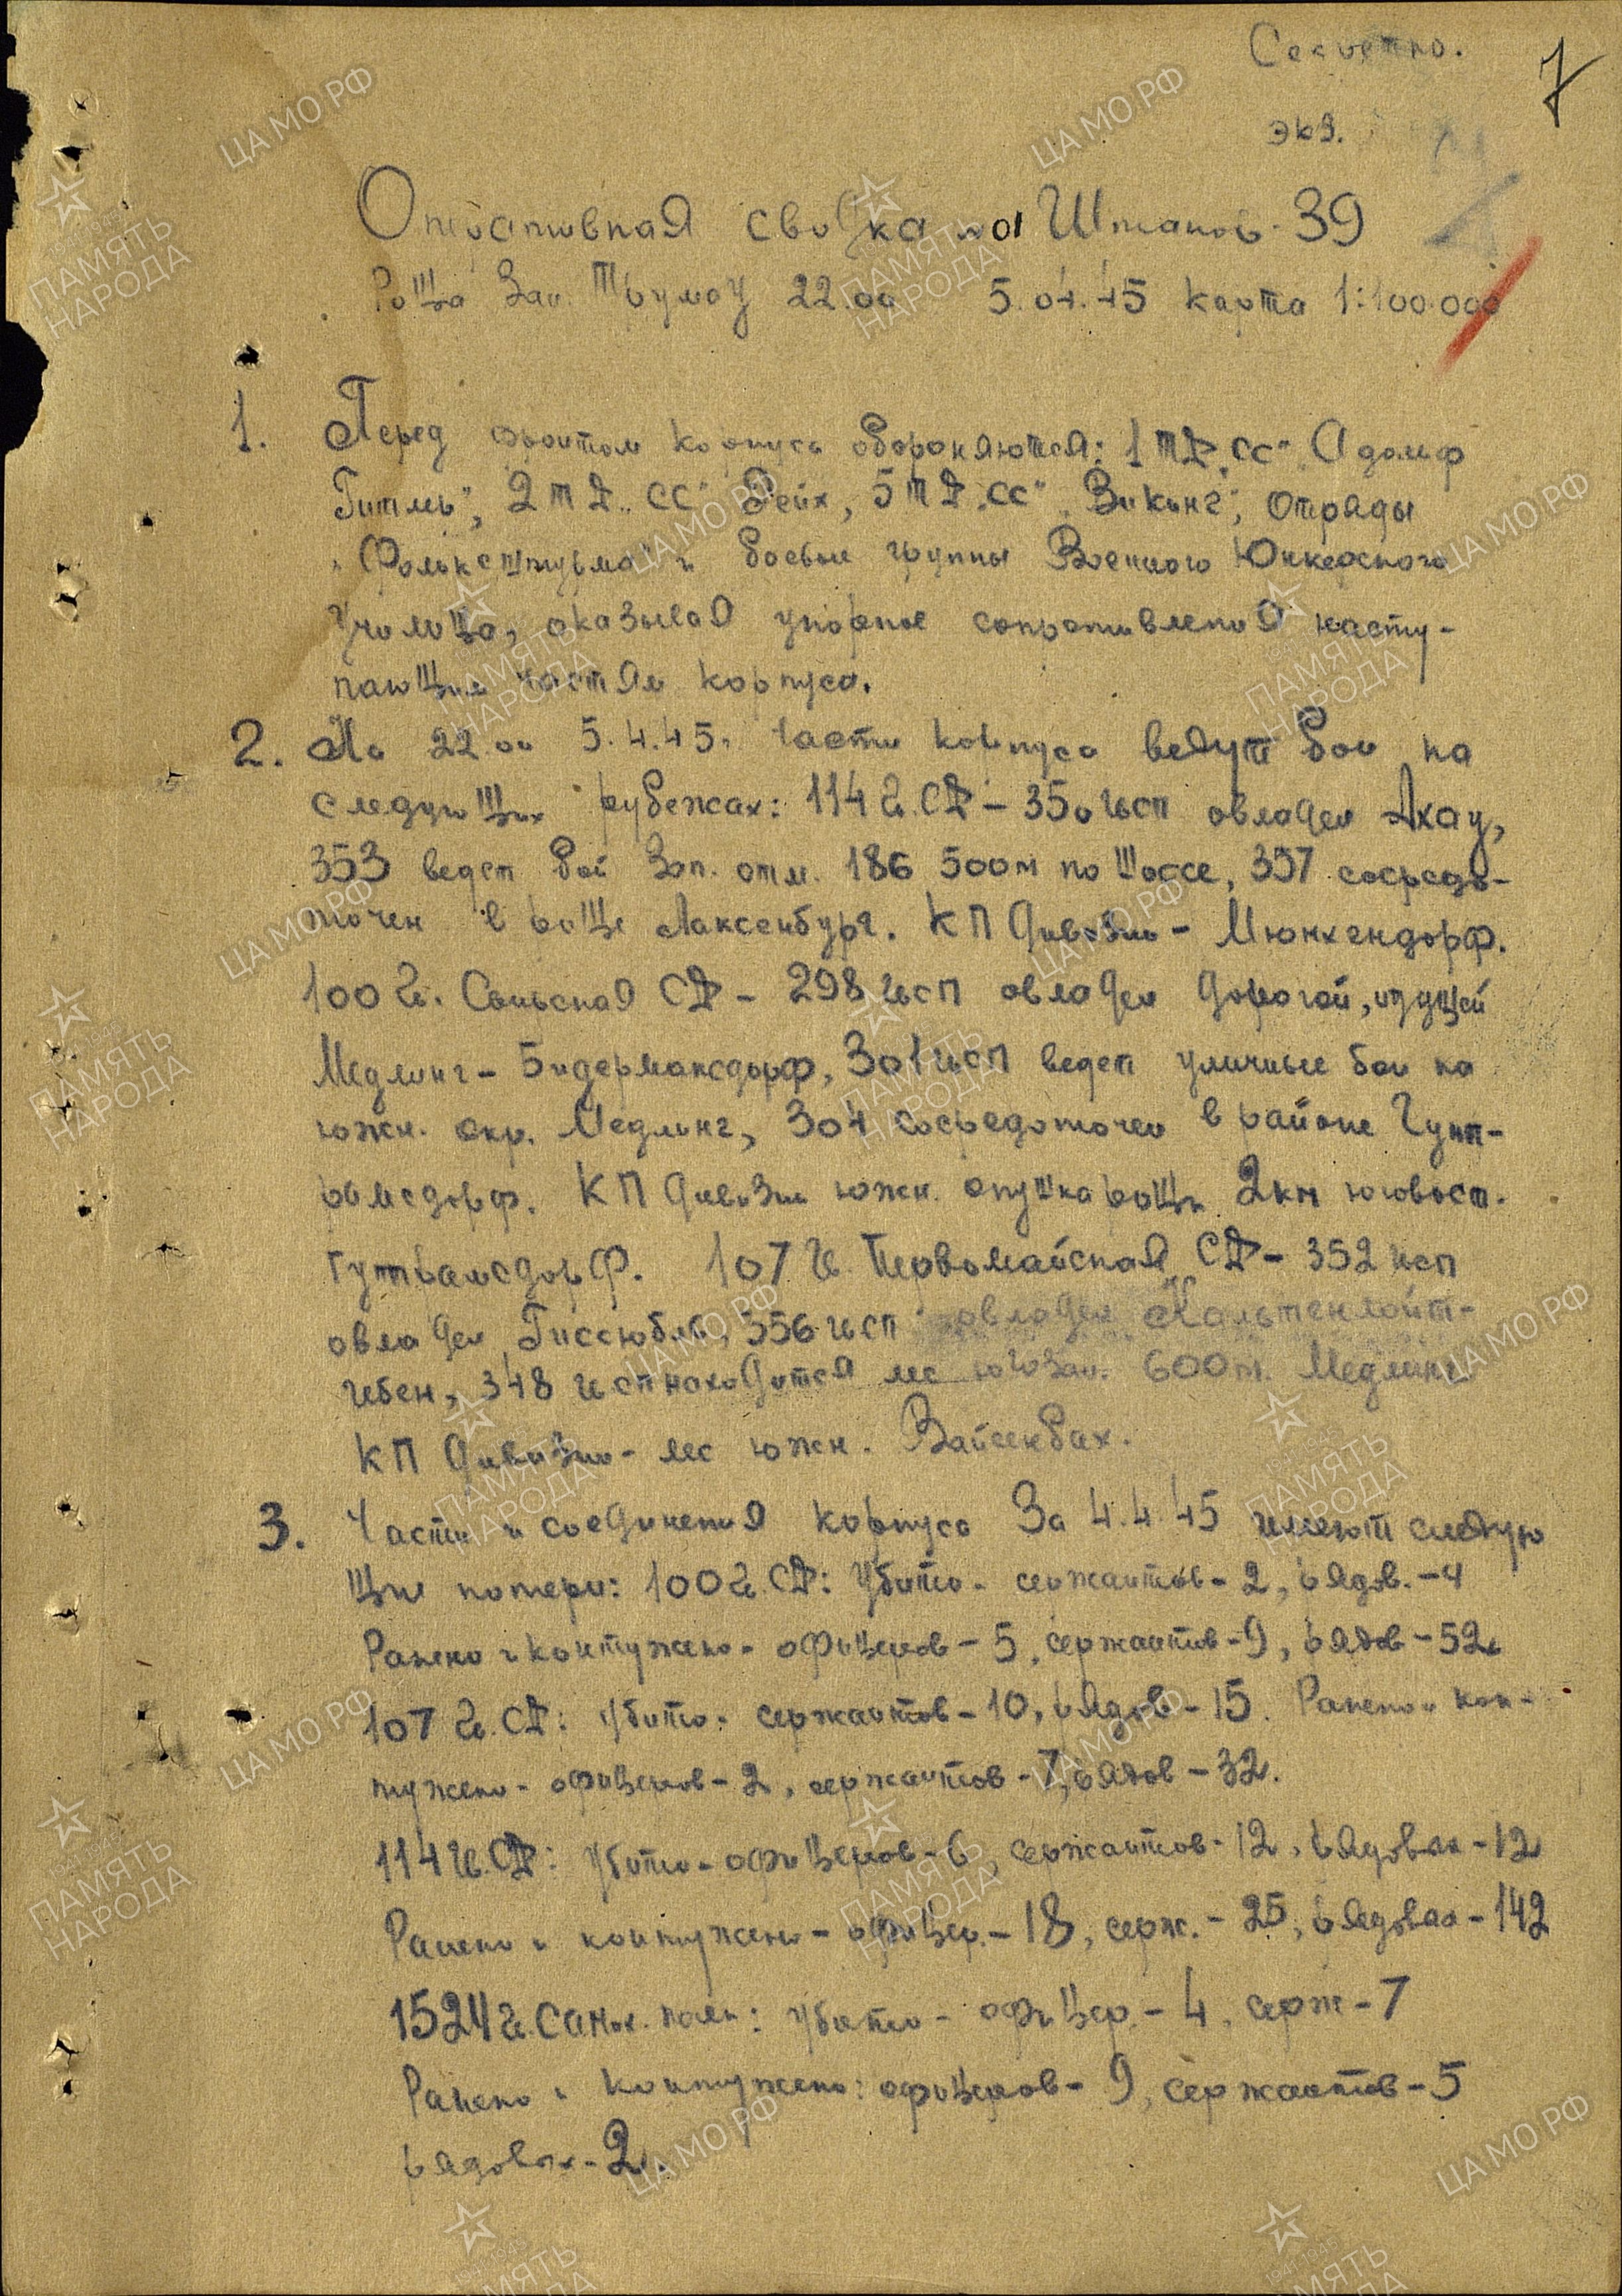 Секретно.
7
экз.
Оперативная сводка № 01 Штаков-39
Роща Зап. Трумау 22.00 5.04.45 карта 1:100.000
1. Перед фронтом корпуса обороняются: 1 ТД „СС" „Адольф
Гитлер", 2 ТД „СС" Рейх, 5 ТД „СС" „Викинг", отряды
„Фольксштурма" и боевые группы Военного Юнкерского
Училища, оказывая упорное сопротивление насту-
пающим частям корпуса.
2. На 22.00 5.4.45. части корпуса ведут бои на
следующих рубежах: 114 гв. СД – 350 гвсп овладел Ахау,
353 ведет бой зап. отм. 186 500 м по шоссе, 357 сосредо-
точен в роще Лаксенбург. КП дивизии – Мюнхендорф.
100 гв. Свирская СД – 298 гвсп овладел дорогой, идущей
Медлинг – Бидермансдорф, 301 гвсп ведет уличные бои на
южн. окр. Медлинг, 304 сосредоточен в районе Гунт-
рамсдорф. КП дивизии южн. опушка рощи 2 км юговост.
Гунтрамсдорф. 107 гв. Первомайская СД – 352 гвсп
овладел Гиссюбль, 356 гвсп овладел Кальтенлойт-
гебен, 348 гвсп находится лес югозап. 600 м. Медлинг
КП дивизии – лес южн. Вайсенбах.
3. Части и соединения корпуса за 4.4.45 имеют следую
щие потери: 100 гв. СД: Убито – сержантов – 2, рядов. – 4
Ранено и контужено – офицеров – 5, сержантов – 9, рядов – 52
107 гв. СД: Убито – сержантов – 10, рядов – 15. Ранено и кон-
тужено – офицеров – 2, сержантов – 7, рядов – 32.
114 гв. СД: Убито – офицеров – 6, сержантов – 12, рядовых – 12
Ранено и контужено – офицер. – 18, серж. – 25, рядовых – 142
1524 гв. Самох. полк: Убито – офицер. – 4, серж – 7
Ранено и контужено: офицеров – 9, сержантов – 5
рядовых – 2.
ЦА МО РФ
ПАМЯТЬ НАРОДА